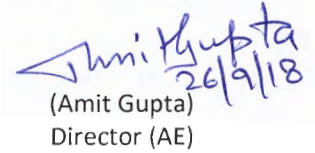 Amit Gupta
26/9/18
(Amit Gupta)
Director (AE)